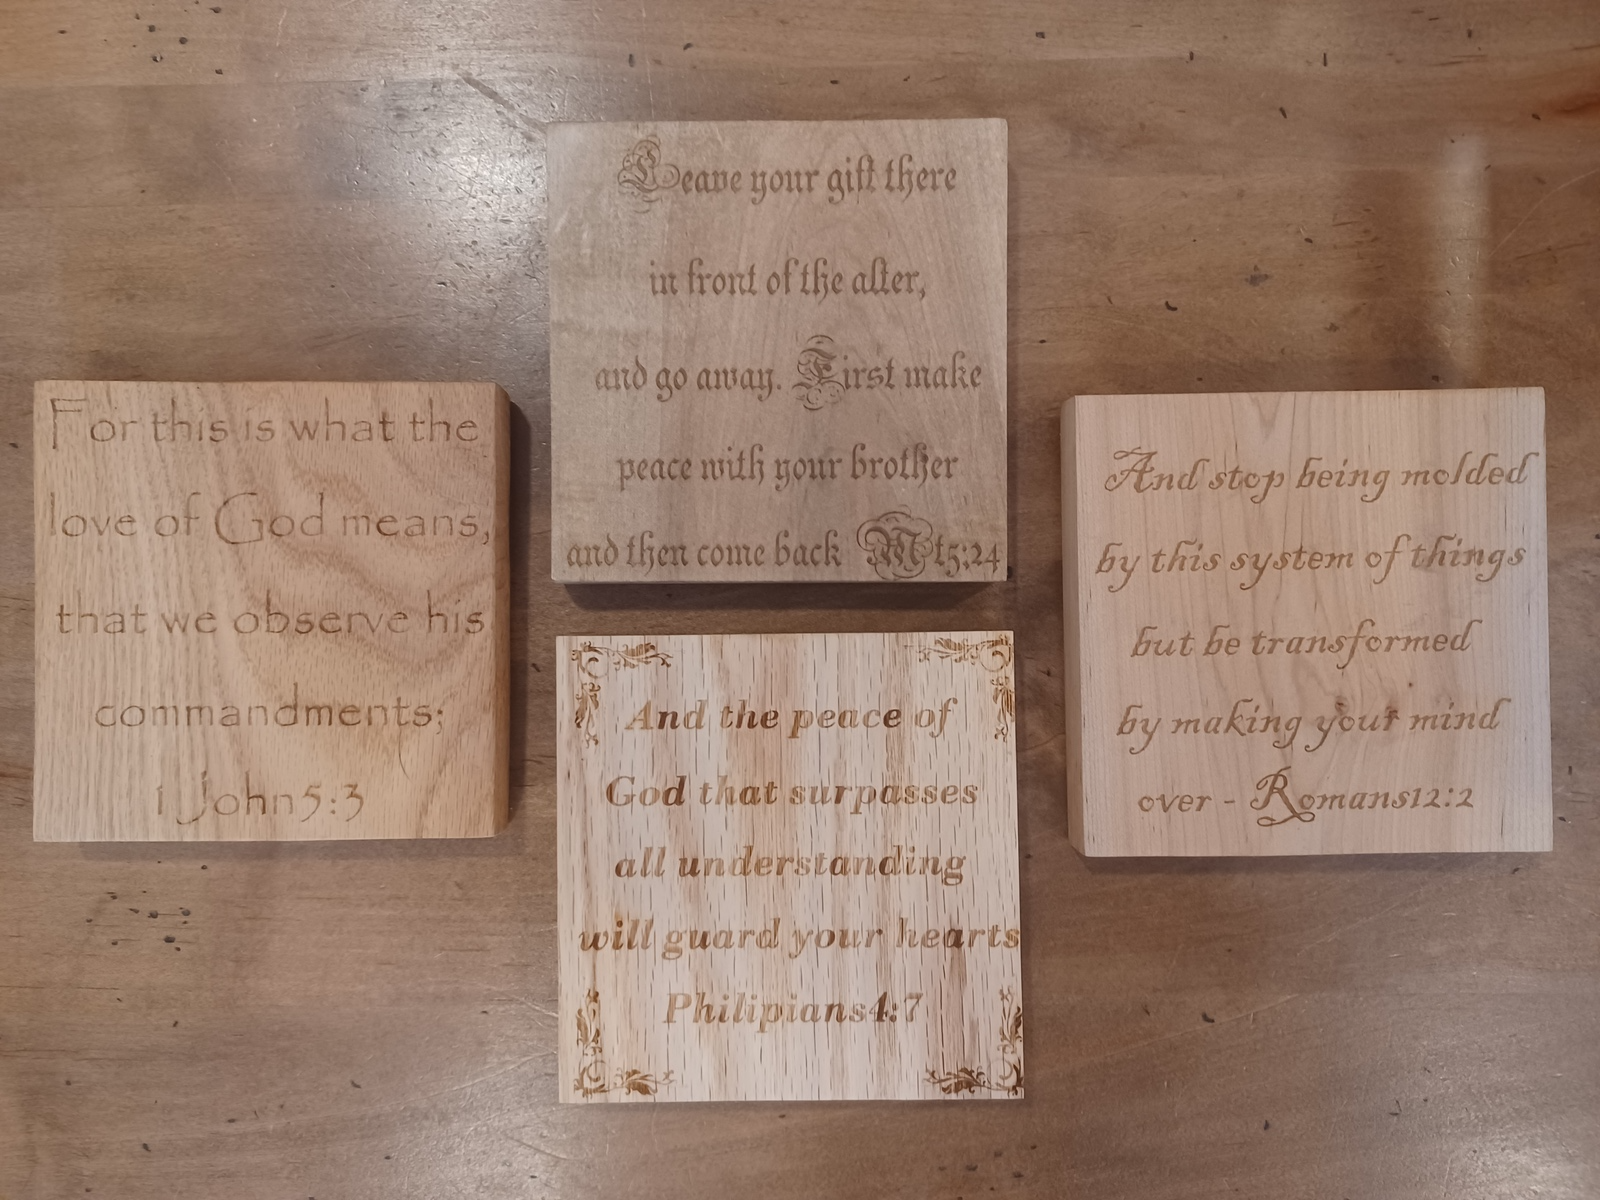 Leave your gift there
in front of the alter,
and go away. First make
peace with your brother
and then come back Mt5:24
For this is what the
love of God means,
that we observe his
commandments;
1 John5:3
And stop being molded
by this system of things
but be transformed
by making your mind
over - Romans12:2
And the peace of
God that surpasses
all understanding
will guard your hearts
Philipians4:7